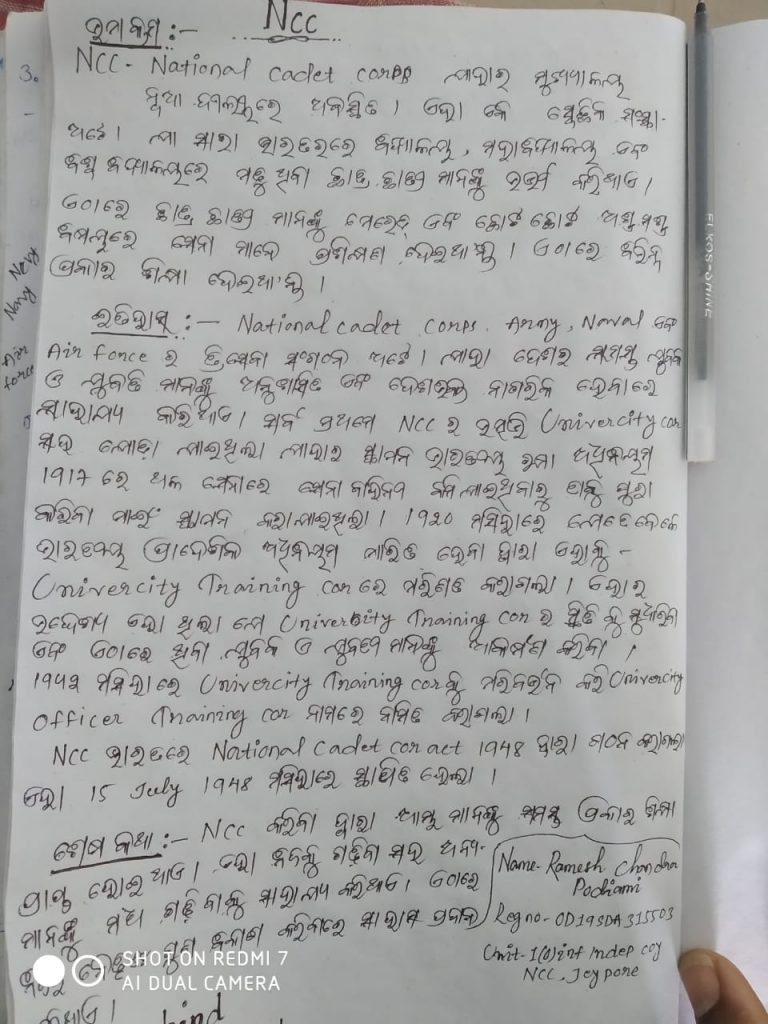 NCC
ଉପକ୍ରମ :-
NCC - National cadet corps ଯାହାର ମୁଖ୍ୟାଳୟ
ନୂଆ ଦୀଲ୍ଲୀରେ ଅବସ୍ଥିତ । ଏହା ଏକ ସ୍ୱେଚ୍ଛିକ ସଂସ୍ଥା
ଅଟେ । ଯା ସାରା ଭାରତରେ ବିଦ୍ୟାଳୟ, ମହାବିଦ୍ୟାଳୟ ଏବଂ
ବିଶ୍ୱ ବିଦ୍ୟାଳୟରେ ପଢୁଥିବା ଛାତ୍ର ଛାତ୍ରୀ ମାନଙ୍କୁ ଭର୍ତ୍ତି କରିଥାଏ ।
ଏଠାରେ ଛାତ୍ର ଛାତ୍ରୀ ମାନଙ୍କୁ ପେରେଡ୍ ଏବଂ ଛୋଟ ଛୋଟ ଅସ୍ତ୍ର ଶସ୍ତ୍ର
ବିଷୟରେ ସେନା ମାନେ ପ୍ରଶିକ୍ଷଣ ଦେଇଥାନ୍ତି । ଏଠାରେ ବିଭିନ୍ନ
ପ୍ରକାର ଶିକ୍ଷା ଦେଇଥାନ୍ତି ।
ଇତିହାସ :- National cadet corps. Army, Naval ଏବଂ
Air force ର ତ୍ରିସେନା ସଂଗଠନ ଅଟେ । ଯାହା ଦେଶର ସମସ୍ତ ଯୁବକ
ଓ ଯୁବତି ମାନଙ୍କୁ ଅନୁଶାସିତ ଏବଂ ଦେଶଭକ୍ତ ନାଗରିକ ହେବାରେ
ସାହାଯ୍ୟ କରିଥାଏ । ସର୍ବ ପ୍ରଥମେ NCC ର ଉତ୍ପତ୍ତି Univercity cor
ସହ ଯୋଡ଼ା ଯାଇଥିଲା ଯାହାର ସ୍ଥାପନ ଭାରତୀୟ ରକ୍ଷା ଅଧିନିୟମ
1917 ରେ ଥଳ ସେନାରେ ସେନା କମି ଯାଇଥିବାରୁ ତାକୁ ପୁରା
କରିବା ପାଇଁ ସ୍ଥାପନ କରାଯାଇଥିଲା । 1920 ମସିହାରେ ଯେତେବେଳେ
ଭାରତୀୟ ପ୍ରାଦେଶିକ ଅଧିନିୟମ ପାରିତ ହେବା ଦ୍ୱାରା ଏହାକୁ -
Univercity Training cor ରେ ପରିଣତ କରାଗଲା । ଏହାର
ଉଦ୍ଦେଶ୍ୟ ଏହା ଥିଲା ଯେ Univercity Training cor ର ସ୍ଥିତି କୁ ସୁଧାରିବା
ଏବଂ ଏଠାରେ ଥିବା ଯୁବକ ଓ ଯୁବତୀ ମାନଙ୍କୁ ଆକର୍ଷଣ କରିବା ।
1942 ମସିହାରେ Univercity Training cor କୁ ପରିବର୍ତ୍ତନ କରି University
Officer Training cor ନାମରେ ନାମିତ କରାଗଲା ।
NCC ଭାରତରେ National Cadet cor act 1948 ଦ୍ୱାରା ଗଠନ କରାଗଲା
ଏହା 15 July 1948 ମସିହାରେ ସ୍ଥାପିତ ହେଲା ।
ଶେଷ କଥା :- NCC କରିବା ଦ୍ୱାରା ଆମ୍ଭ ମାନଙ୍କୁ ସମସ୍ତ ପ୍ରକାର ଶିକ୍ଷା
ପ୍ରାପ୍ତ ହୋଇଥାଏ । ଏହା ନିଜକୁ ଗଢ଼ିବା ସହ ଅନ୍ୟ-
ମାନଙ୍କୁ ମଧ୍ୟ ଗଢ଼ିବାକୁ ସାହାଯ୍ୟ କରିଥାଏ । ଏଠାରେ
ଗୁଣ ବିକାଶ କରିବାରେ
Name- Ramesh Chandra
Podhami
Regno- OD19SDA315503
Unit- 1(O) inf indep coy
NCC, Jeypore
3.
Nevy
Navy
Air
force
ELKOS-SHINE
SHOT ON REDMI 7
AI DUAL CAMERA
hind